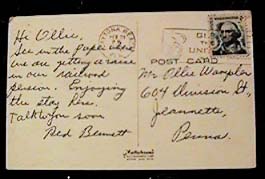 Hi Ollie,
See in the paper where
we are getting a raise
in our railroad
pension. Enjoying
the stay here.
Talk to you soon
Red Bennett
DAYTONA BEACH
POST CARD
Mr Ollie Wampler
604 Division St,
Jeannette,
Penna.